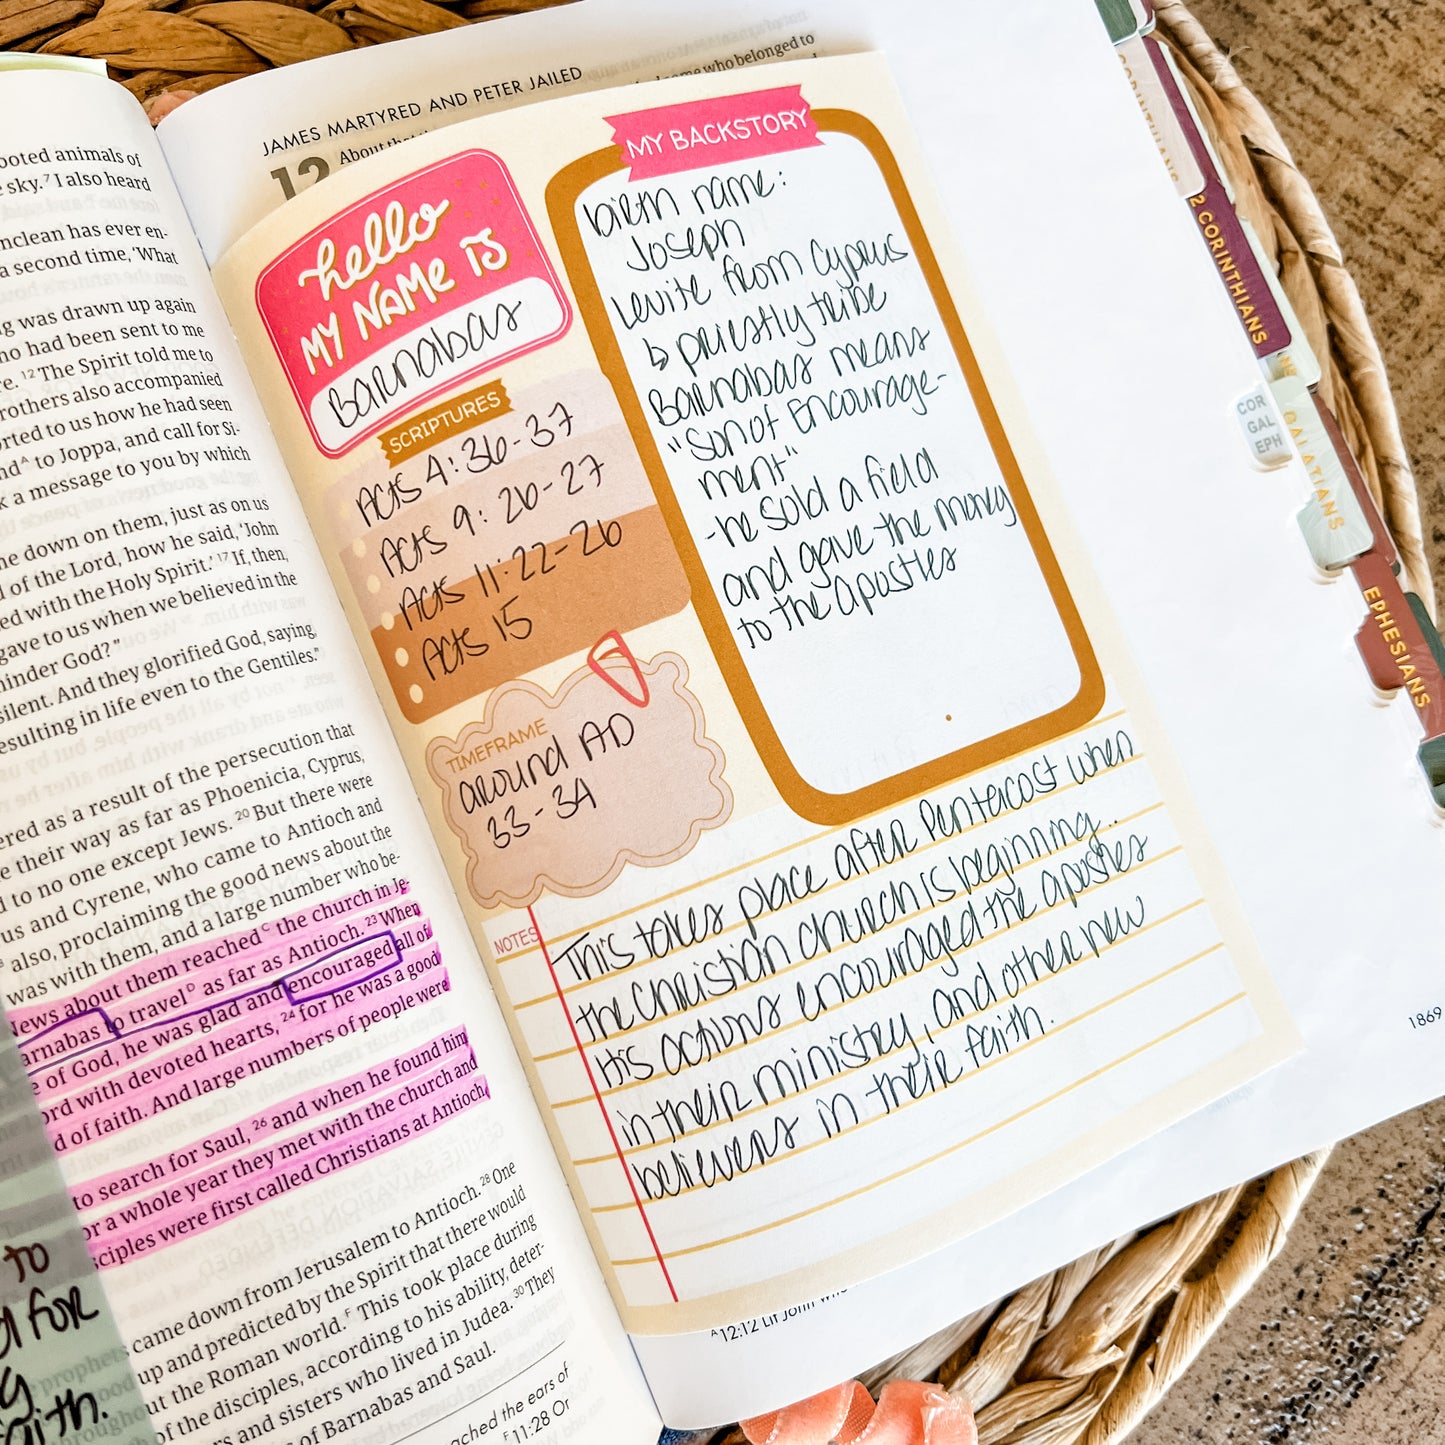 ooted animals of
sky.⁷ I also heard
nclean has ever en-
a second time, 'What
g was drawn up again
ho had been sent to me
re. ¹² The Spirit told me to
rothers also accompanied
orted to us how he had seen
nd ᴬ to Joppa, and call for Si-
k a message to you by which
ne down on them, just as on us
d of the Lord, how he said, 'John
ed with the Holy Spirit.' ¹⁷ If, then,
gave to us when we believed in the
hinder God?"
silent. And they glorified God, saying,
esulting in life even to the Gentiles."
ered as a result of the persecution that
e their way as far as Phoenicia, Cyprus,
d to no one except Jews. ²⁰ But there were
us and Cyrene, who came to Antioch and
also, proclaiming the good news about the
was with them, and a large number who be-
News about them reached ᶜ the church in Je-
arnabas to travel ᴰ as far as Antioch. ²³ When
e of God, he was glad and encouraged all of
ord with devoted hearts, ²⁴ for he was a good
d of faith. And large numbers of people were
to search for Saul, ²⁶ and when he found him
or a whole year they met with the church and
sciples were first called Christians at Antioch.
came down from Jerusalem to Antioch. ²⁸ One
up and predicted by the Spirit that there would
out the Roman world. ᶠ This took place during
of the disciples, according to his ability, deter-
rs and sisters who lived in Judea. ³⁰ They
s of Barnabas and Saul.
ached the ears of
ᶠ 11:28 Or
to
for
aith.
JAMES MARTYRED AND PETER JAILED
12 About that
some who belonged to
hello
MY NAME IS
Barnabas
SCRIPTURES
Acts 4:36-37
Acts 9:26-27
Acts 11:22-26
Acts 15
TIMEFRAME
around AD
33-34
MY BACKSTORY
birth name:
Joseph
Levite from Cyprus
↳ priestly tribe
Barnabas means
"Son of Encourage-
ment"
-he sold a field
and gave the money
to the apostles
NOTES
This takes place after Pentecost when
the Christian church is beginning..
His actions encouraged the apostles
in their ministry, and other new
believers in their faith.
ᴬ 12:12 Lit John who
1869
CORINTHIANS
2 CORINTHIANS
COR
GAL
EPH
GALATIANS
EPHESIANS